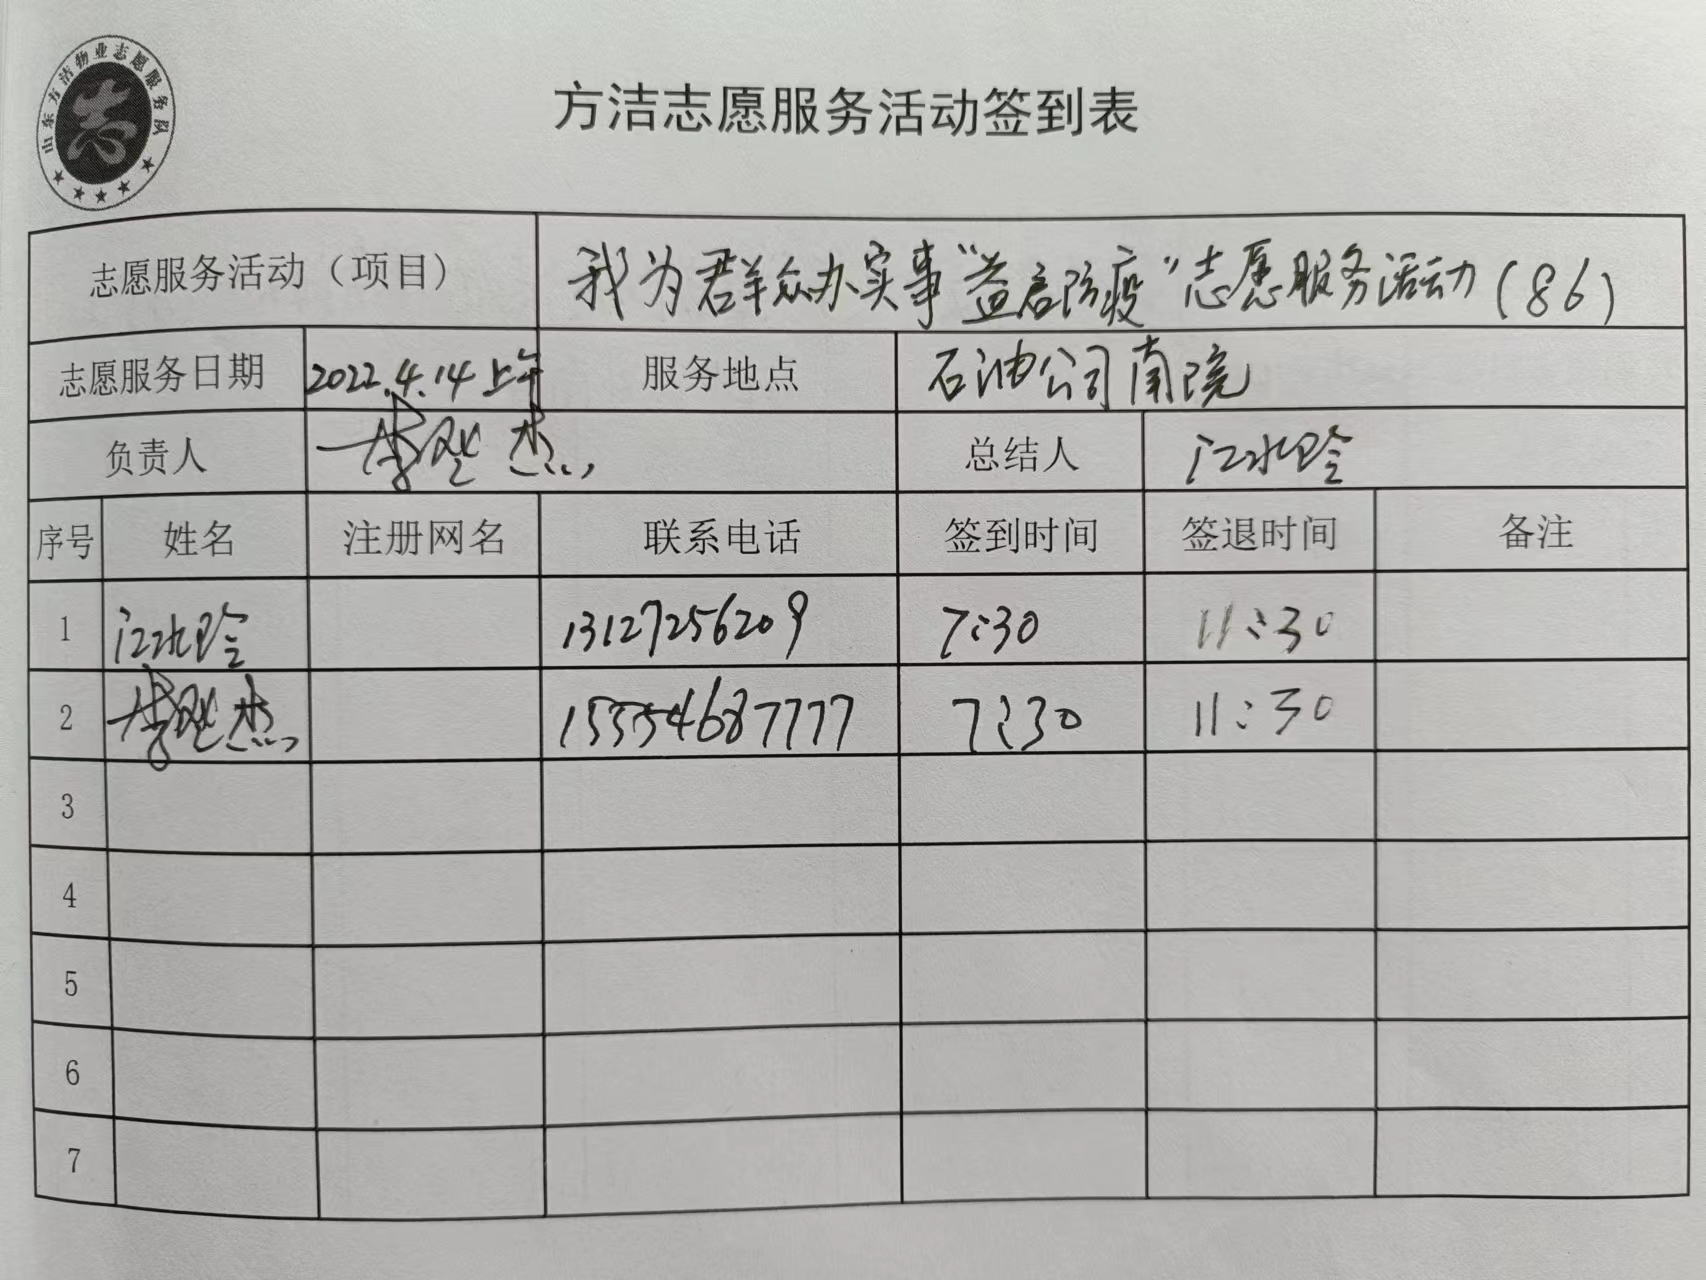 山东方洁物业志愿服务队
志
方洁志愿服务活动签到表
志愿服务活动（项目） 我为群众办实事“益启防疫”志愿服务活动（86）
志愿服务日期 2022.4.14上午 服务地点 石油公司南院
负责人 李 杰 总结人 江水玲
序号 姓名 注册网名 联系电话 签到时间 签退时间 备注
1 江水玲 13127256209 7:30 11:30
2 李 杰 15554687777 7:30 11:30
3
4
5
6
7